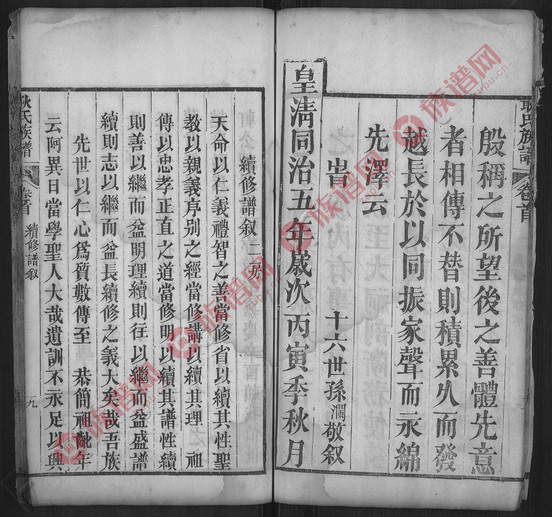 殷稱之所望後之善體先意
者相傳不替則積累久而發
越長於以同振家聲而永綿
先澤云
旹
皇清同治五年歲次丙寅季秋月
十六世孫瀾敬叙
耿氏族譜 卷首
續修譜叙
天命以仁義禮智之善當修省以續其性聖
教以親義序別之經當修講以續其理 祖
傳以忠孝正直之道當修明以續其譜性續
則善以繼而益明理續則往以繼而益盛譜
續則志以繼而益長續修之義大矣哉吾族
先世以仁心爲質數傳至 恭簡祖齔年
云阿異日當學聖人大哉遺訓不永足以興
耿氏族譜 卷首 續修譜叙 九
族谱网